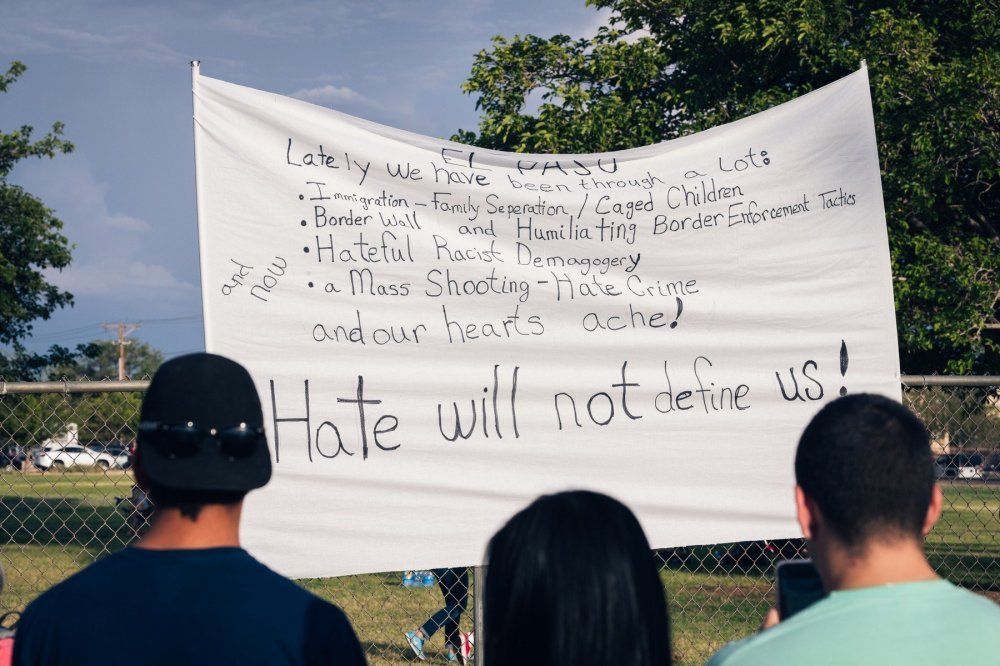 EL PASO
Lately we have been through a lot:
• Immigration - Family Seperation / Caged Children
• Border Wall and Humiliating Border Enforcement Tactics
• Hateful Racist Demagogery
and now • a Mass Shooting - Hate Crime
and our hearts ache!
Hate will not define us!